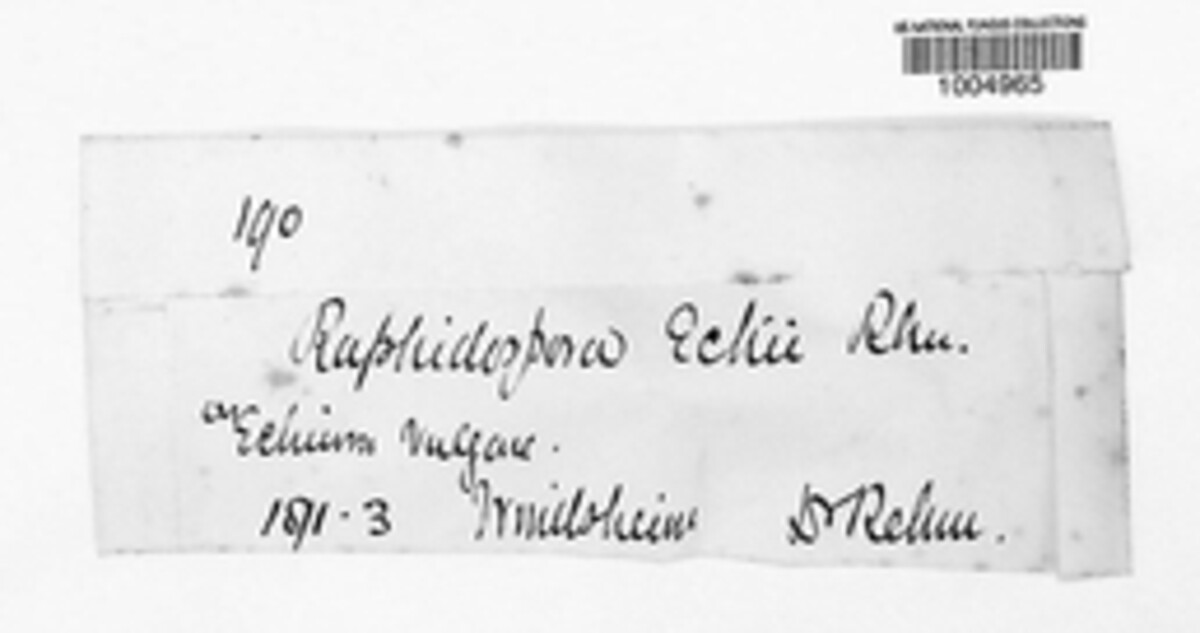 US NATIONAL FUNGUS COLLECTIONS
1004965
190
Raphidospora Echii Rhm.
on Echium vulgare.
1871-3 Windsheim Dr Rehm.